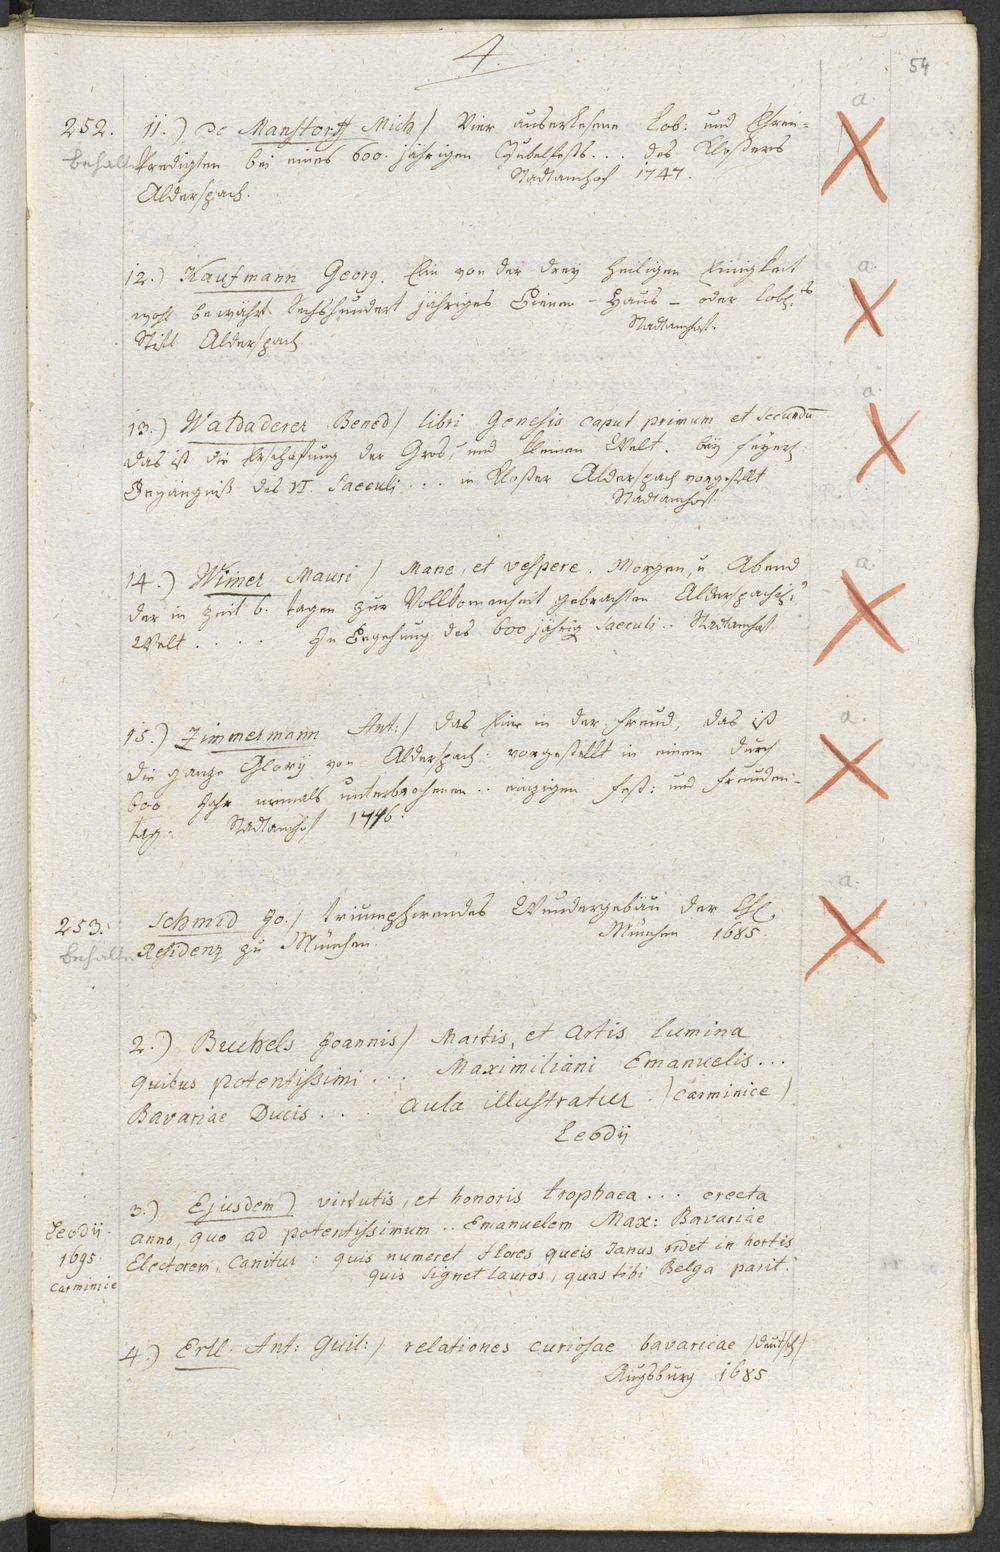 4.
54
a.
252. 11.) de Manstorff Mich / Vier auserlesene Lob: und Ehren=
behalten Predigten bei eines 600. jährigen Jubelfests... des Klosters
Alderspach. Stadtamhof 1747.
a.
12.) Kaufmann Georg. Ein von der drey heiligen Einigkeit
wohl bewährt Sechshundert jähriges Bienen-Haus - oder Lobl.
Stift Alderspach Stadtamhof.
a.
13.) Waldaderer Bened / libri Genesis caput primum et secundū
das ist die Erschafung der Gros, und kleinen Welt. bey feyerl.
Begängniß des VI. Saeculi... in Kloster Alderspach vorgestellt
Stadtamhof.
a.
14.) Wimer Mauri / Mane, et vespere. Morgen, u Abend
der in zeit 6. tagen zur Vollkomenheit gebrachten Alderspach:
Welt.... In Begehung des 600 jährig Saeculi.. Stadtamhof.
a.
15.) Zimmermann Ant:/ das Eine in der Freud, das ist
die ganze Glory von Alderspach: vorgestellt in einem durch
600 Jahr niemals unterbrochenen.. einzigen Fest: und Freuden-
tag. Stadtamhof 1746.
a.
253. Schmid Jo./ triumphirendes Wundergebäu der Chf.
behalten Residenz zu München. München 1685.
2.) Beuhels Joannis / Martis, et Artis lumina
quibus potentissimi... Maximiliani Emanuelis...
Bavariae Ducis... aula illustratur. /carminice/
Leodij
3.) Ejusdem) virtutis, et honoris trophaea... erecta
anno, quo ad potentissimum.. Emanuelem Max: Bavariae
Electorem. Canitur: quis numeret flores queis Janus ridet in hortis
quis signet lauros, quas tibi Belga parit.
Leodij.
1695.
carminice
4.) Ertl. Ant: Guil:/ relationes curiosae bavaricae /deutsch/
Augsburg 1685